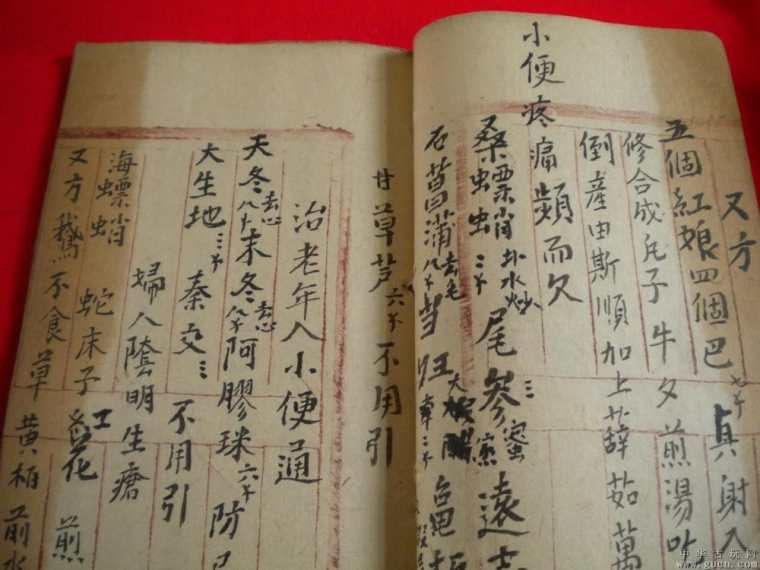 又方
五個紅娘四個巴 七个 真射入
修合成丸子牛夕煎湯
倒產由斯順加上蓽茹萬
小便疼痛頻而欠
桑螵蛸 盐水炒 三个 尾參 三 蜜煎 遠志
石菖蒲 去毛 八个 当
甘草芦 六个 不用引
治老年人小便通
天冬 去心 八个 末冬 去心 八个 阿膠珠 六个 防
大生地 三个 秦交 三 不用引
婦人陰明生瘡
海螵蛸 蛇床子 紅花 煎
又方鵝不食草 黄柏 前水
中华古玩网
www.gucn.com